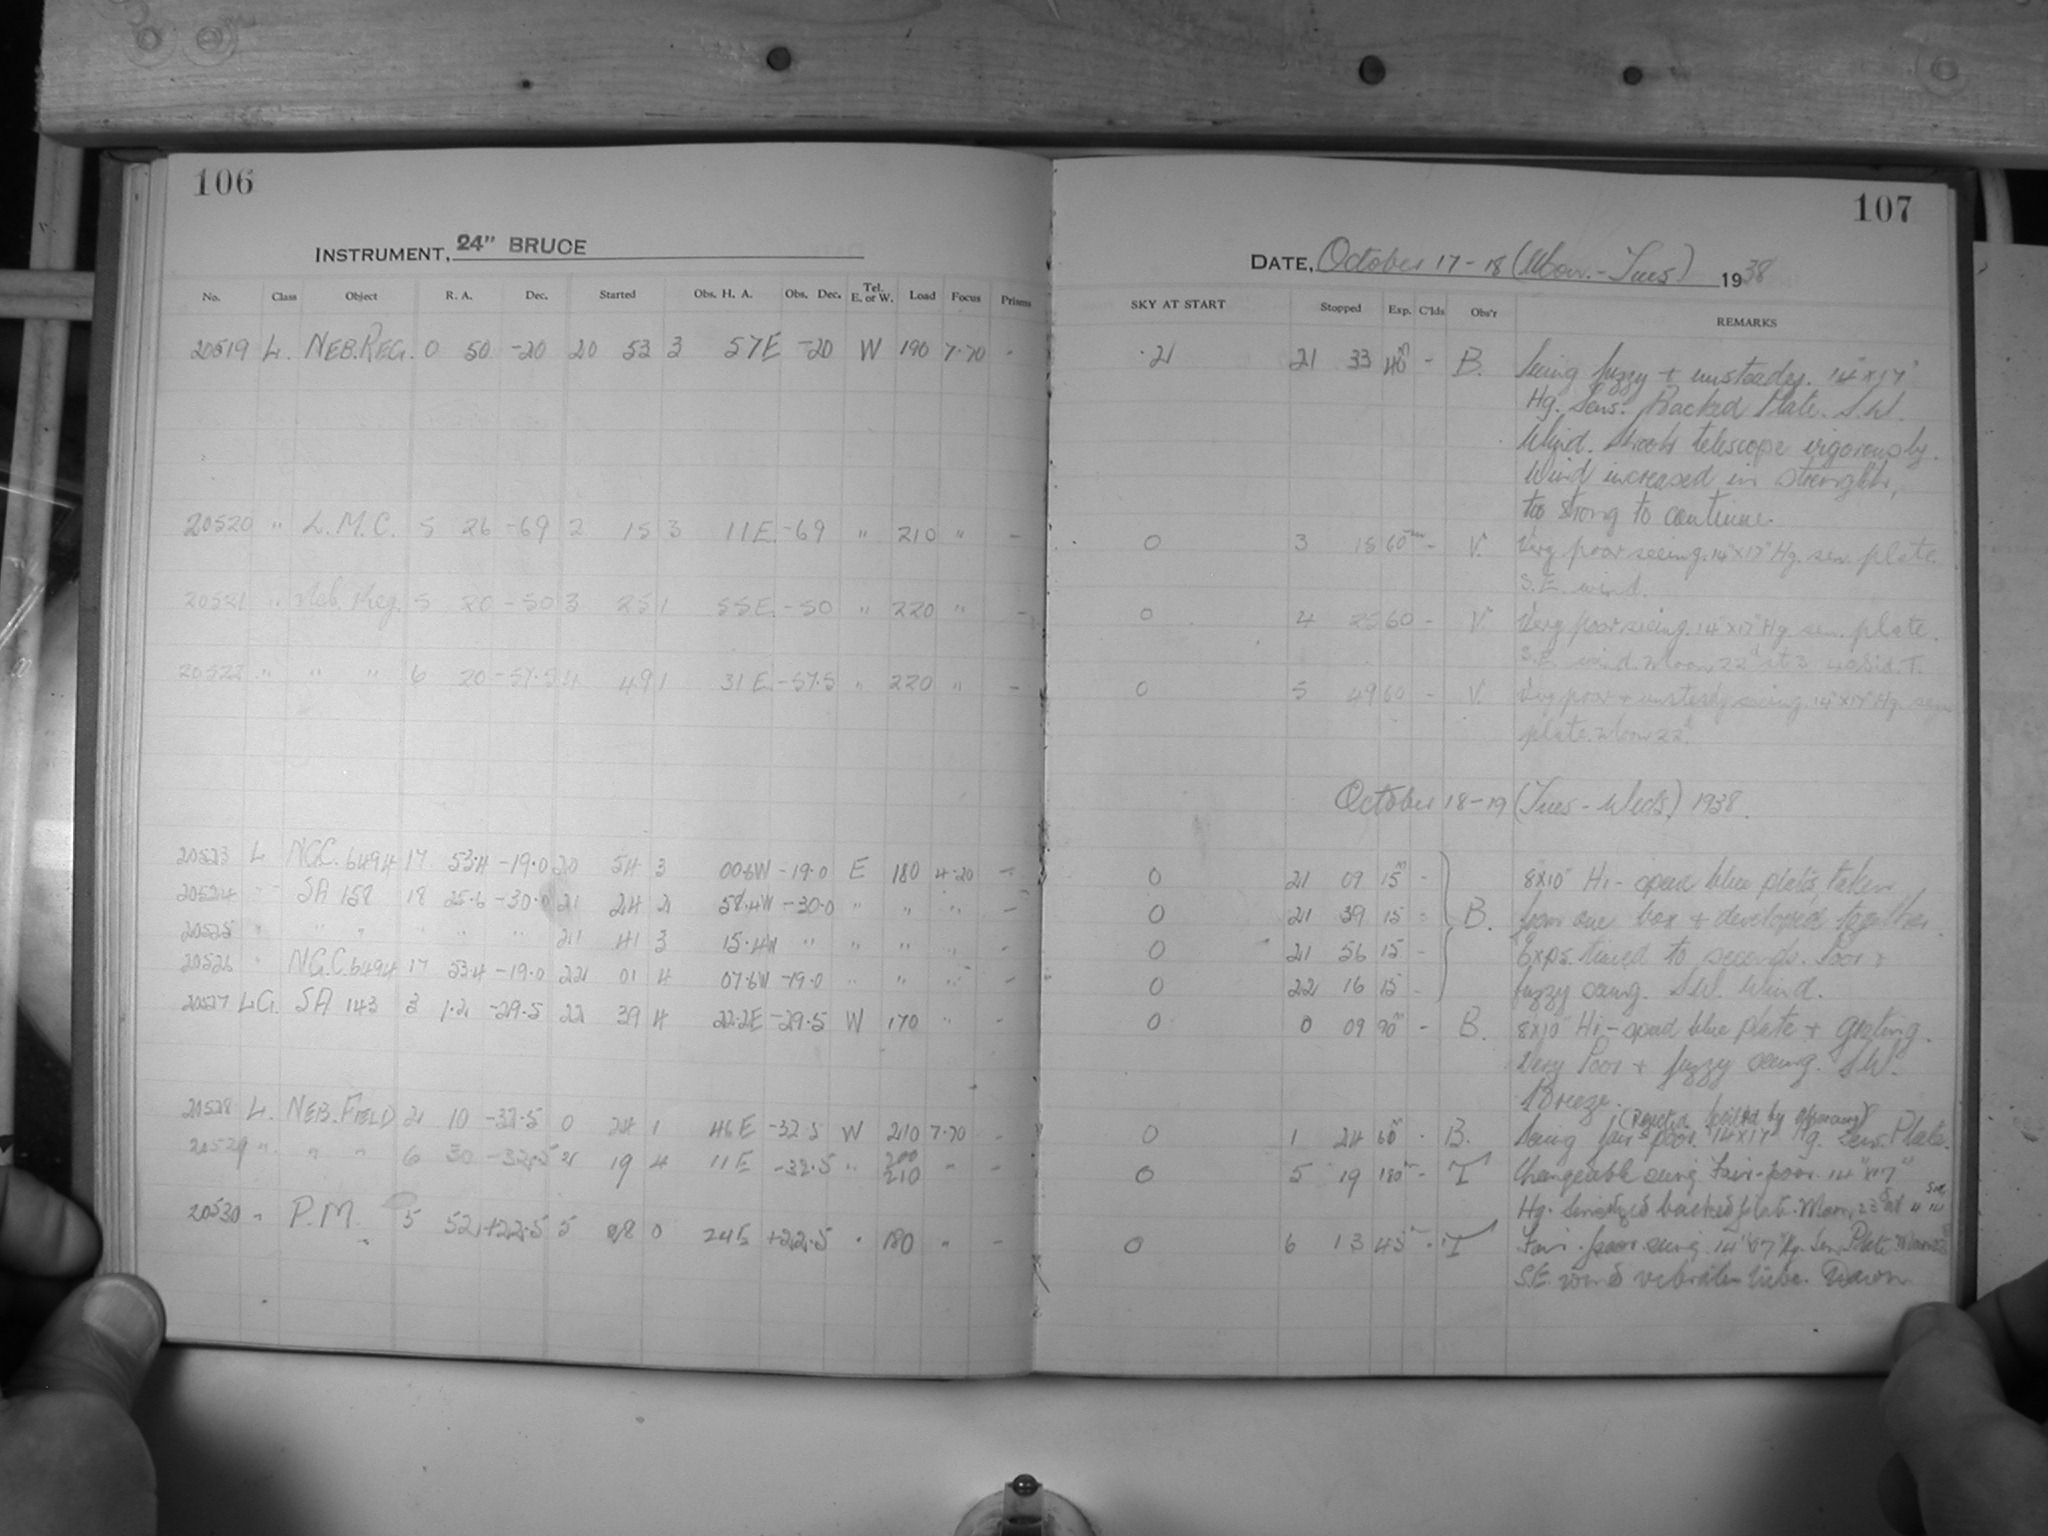 106
INSTRUMENT, 24" BRUCE
No. Class Object R. A. Dec. Started Obs. H. A. Obs. Dec. Tel. E. or W. Load Focus Prisms
20519 L. NEB.REG. 0 50 -20 20 53 3 57E -20 W 190 7.70 -
20520 " L.M.C. 5 26 -69 2 15 3 11E -69 " 210 " -
20521 " Neb. Reg. 5 20 -50 3 25 1 55E -50 " 220 " -
20522 " " " 6 20 -57.5 4 49 1 31E -57.5 " 220 " -
20523 L NGC. 6494 17 53.4 -19.0 20 54 3 00.6W -19.0 E 180 4.20 -
20524 " SA 158 18 25.6 -30.0 21 24 2 58.4W -30.0 " " " -
20525 " " " " " " 21 41 3 15.4W " " " " -
20526 " NGC. 6494 17 53.4 -19.0 22 01 4 07.6W -19.0 " " " -
20527 LG. SA 143 3 1.2 -29.5 22 39 4 22.2E -29.5 W 170 " -
20528 L. NEB. FIELD 2 10 -32.5 0 24 1 46E -32.5 W 210 7.70 -
20529 " " " 6 30 -32.5 2 19 4 11E -32.5 " 200 210 " -
20530 " P.M. 5 52 +22.5 5 28 0 24E +22.5 " 180 " -
107
DATE, October 17-18 (Mon.-Tues) 1938
SKY AT START Stopped Exp. C'lds Obs'r REMARKS
21 21 33 40m - B. Seeing fuzzy + unsteady. 14"x17"
Hg. Sens. Backed Plate. S.W.
Wind. Shook telescope vigorously.
Wind increased in strength,
too strong to continue.
0 3 15 60m - V. Very poor seeing. 14"x17" Hg. sen. plate.
S.E. wind.
0 4 25 60 - V. Very poor seeing. 14"x17" Hg. sen. plate.
S.E. wind. Moon 22d at 3 40 Sid. T.
0 5 49 60 - V. Very poor + unsteady seeing. 14"x17" Hg. sen
plate. Moon 22d.
October 18-19 (Tues-Weds) 1938.
0 21 09 15m - 8x10" Hi-speed blue plates taken
0 21 39 15 - B. from one box + developed together.
0 21 56 15 - Exps. timed to seconds. Poor +
0 22 16 15 - fuzzy seeing. S.W. Wind.
0 0 09 90m - B. 8x10" Hi-speed blue plate + grating.
Very Poor + fuzzy seeing. S.W.
Breeze.
0 1 24 60m - B. Seeing fair-poor. 14"x17" Hg. Sens. Plate.
0 5 19 180m - T Changeable seeing Fair-poor. 14"x17"
Hg. Sensitized backed plate. Moon
0 6 13 45m - T Fair-poor seeing 14"x17" Hg. Sen. Plate
S.E. wind vibrates tube. Dawn